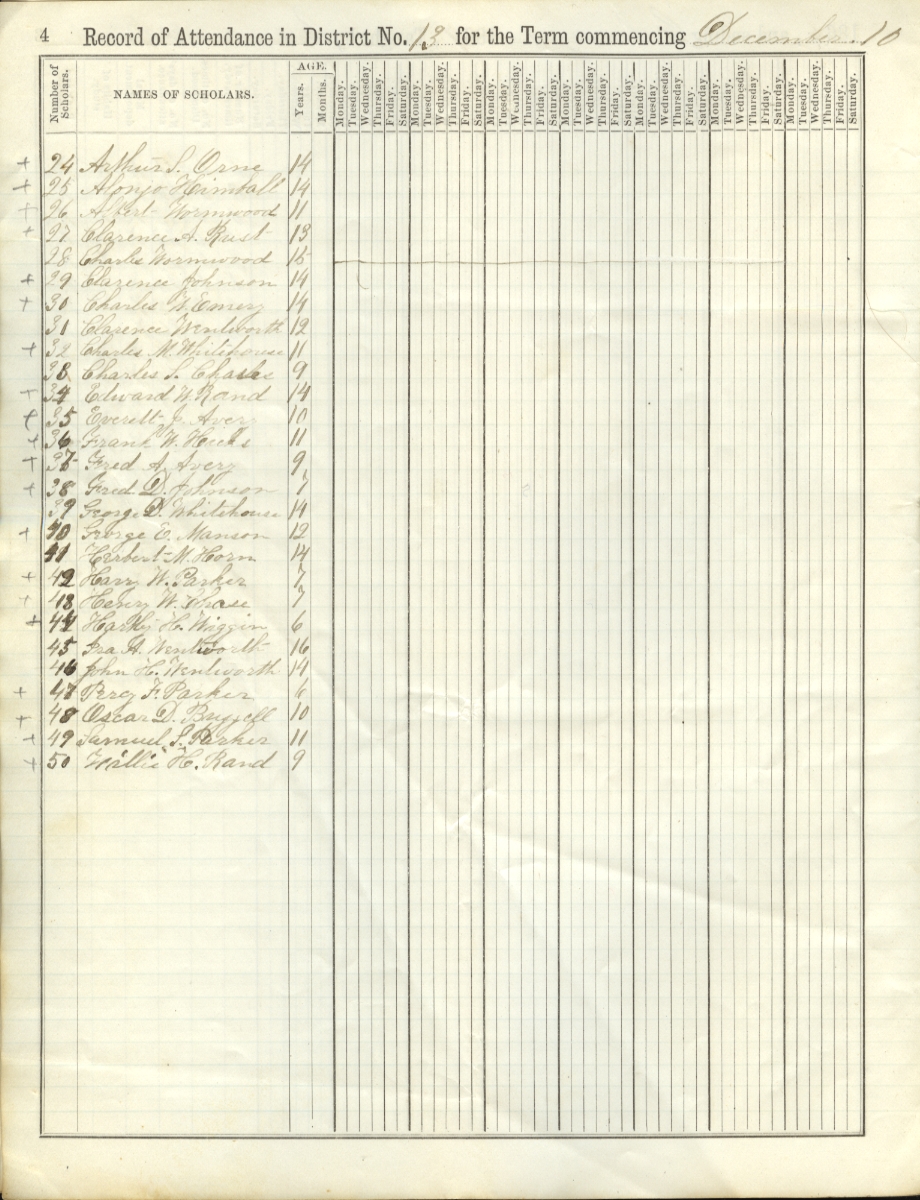 4 Record of Attendance in District No. 13 for the Term commencing December 10
Number of Scholars. NAMES OF SCHOLARS. AGE. Years. Months. Monday. Tuesday. Wednesday. Thursday. Friday. Saturday. Monday. Tuesday. Wednesday. Thursday. Friday. Saturday. Monday. Tuesday. Wednesday. Thursday. Friday. Saturday. Monday. Tuesday. Wednesday. Thursday. Friday. Saturday. Monday. Tuesday. Wednesday. Thursday. Friday. Saturday. Monday. Tuesday. Wednesday. Thursday. Friday. Saturday. Monday. Tuesday. Wednesday. Thursday. Friday. Saturday.
+ 24 Arthur S. Orne 14
+ 25 Alonzo Kimball 14
+ 26 Albert Wormwood 11
+ 27 Clarence A. Rust 13
28 Charles Wormwood 15
+ 29 Clarence Johnson 14
+ 30 Charles W. Emery 14
31 Clarence Wentworth 12
+ 32 Charles M. Whitehouse 11
33 Charles S. Chase 9
+ 34 Edward W. Rand 14
+ 35 Everett J. Avery 10
+ 36 Frank W. Hicks 11
+ 37 Fred A. Avery 9
+ 38 Fred D. Johnson 7
39 George D. Whitehouse 14
+ 40 George E. Manson 12
41 Herbert M. Horn 14
+ 42 Harry W. Parker 7
+ 43 Henry W. Chase 7
+ 44 Harry H. Wiggin 6
45 Ira H. Wentworth 16
46 John H. Wentworth 14
+ 47 Percy F. Parker 6
+ 48 Oscar D. 10
+ 49 Samuel S. Parker 11
+ 50 Willie H. Rand 9